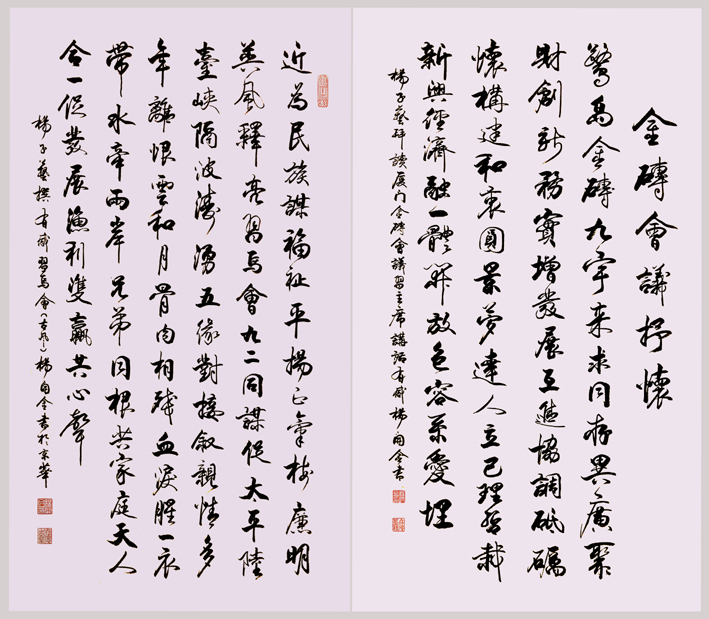 金磚會議抒懷
鷺島金磚九宇来求同存異廣聚
財創新務實增發展互進協調砥礪
懷構建和衷圓景夢達人立己理哲耕
新興經濟融一體開放包容系愛埋
楊子藝研讀厦门金磚會議習主席講話有感楊自全書
近為民族謀福祉平楊正氣樹廉明
美風釋亮習馬會九二同謀促太平陸
臺峽隔波濤湧五緣對接敘親情多
年離恨雲和月骨肉相殘血淚腥一衣
帶水牽兩岸兄弟同根共家庭天人
合一促發展漁利雙贏共心聲
楊子藝撰有感習馬會（古風）楊自全書於京華